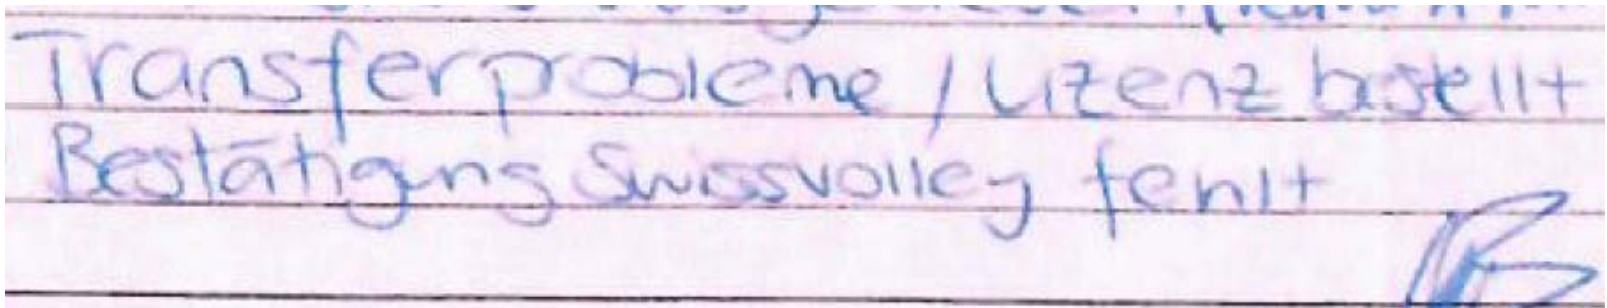 Transferprobleme / Lizenz bestellt
Bestätigung Swissvolley fehlt